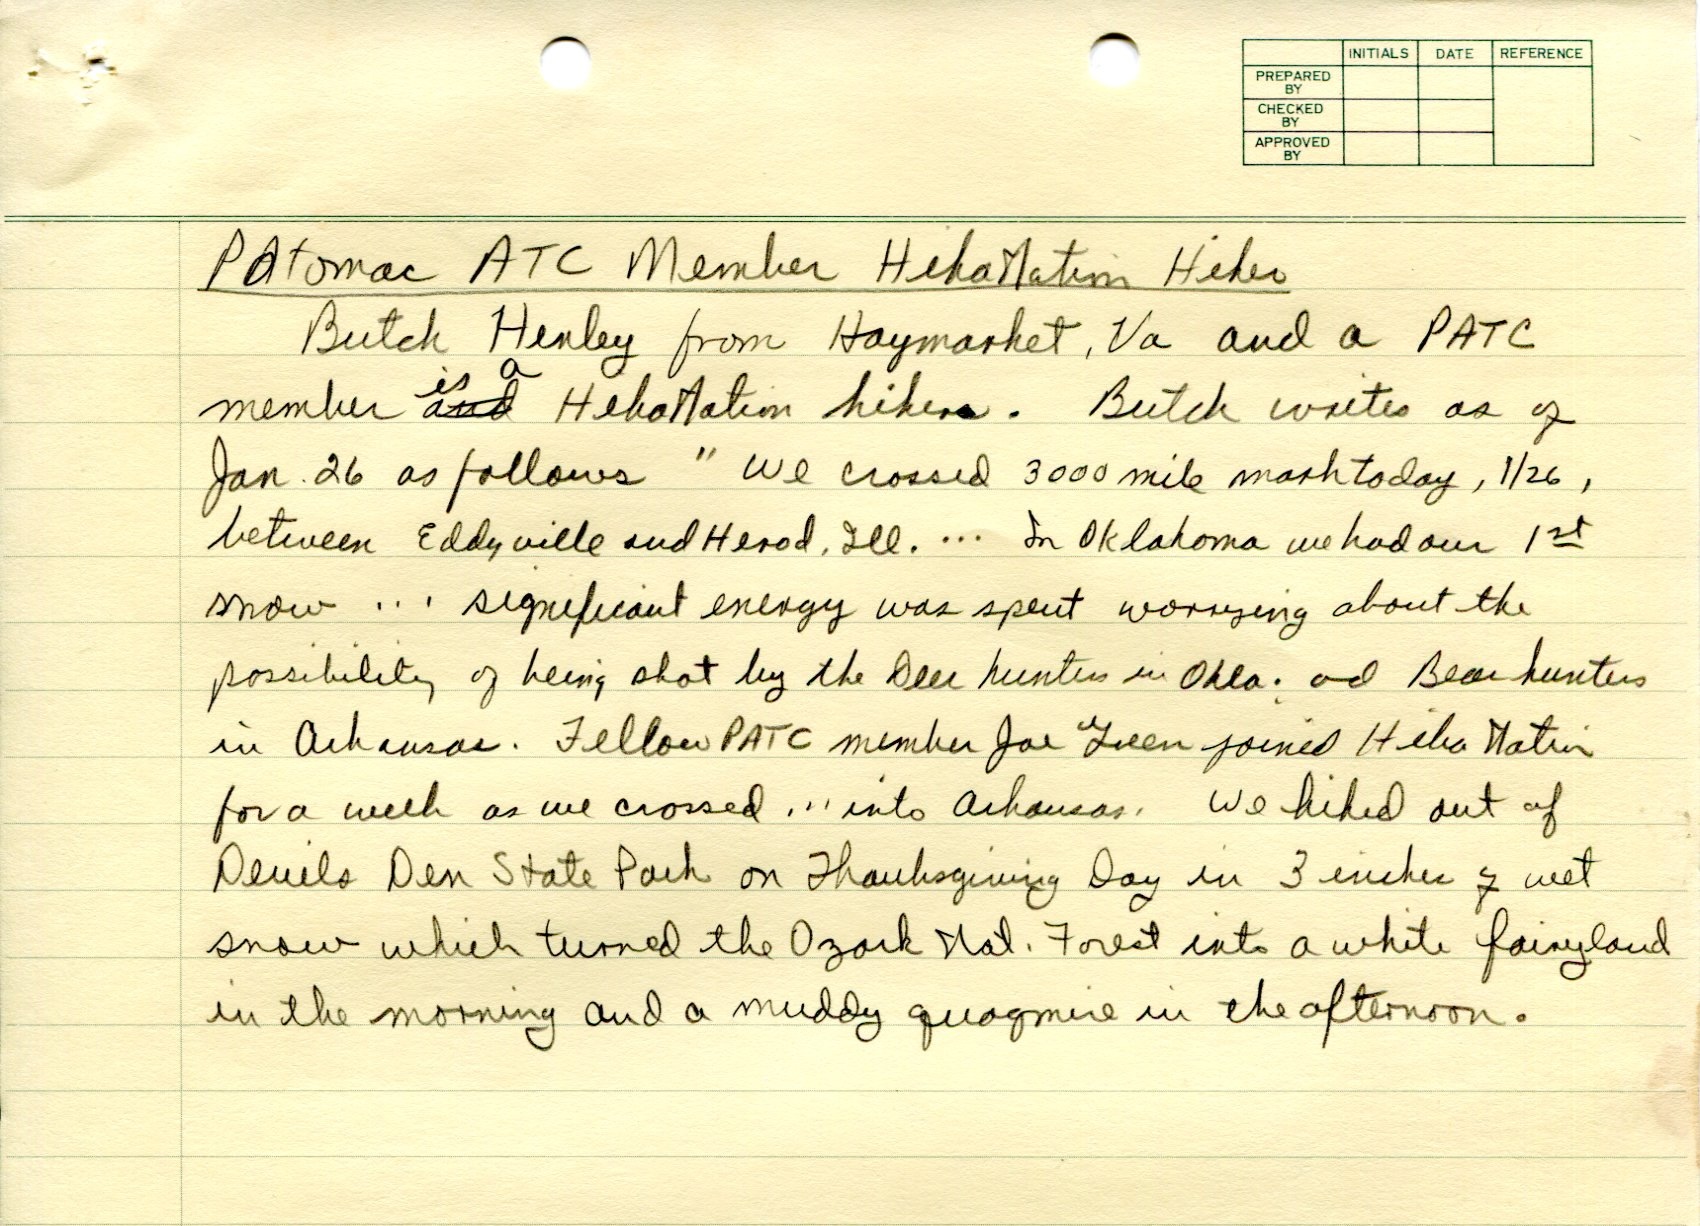 INITIALS DATE REFERENCE
PREPARED BY
CHECKED BY
APPROVED BY
Patomac ATC Member HikaNation Hiker
Butch Henley from Haymarket, Va and a PATC
member is a HikaNation hiker. Butch writes as of
Jan. 26 as follows " We crossed 3000 mile mark today, 1/26,
between Eddyville and Herod, Ill. ... In Oklahoma we had our 1st
snow ... significant energy was spent worrying about the
possibility of being shot by the Deer hunters in Okla. and Bear hunters
in Arkansas. Fellow PATC member Joe Green joined HikaNation
for a week as we crossed ... into Arkansas. We hiked out of
Devils Den State Park on Thanksgiving Day in 3 inches of wet
snow which turned the Ozark Nat. Forest into a white fairyland
in the morning and a muddy quagmire in the afternoon.